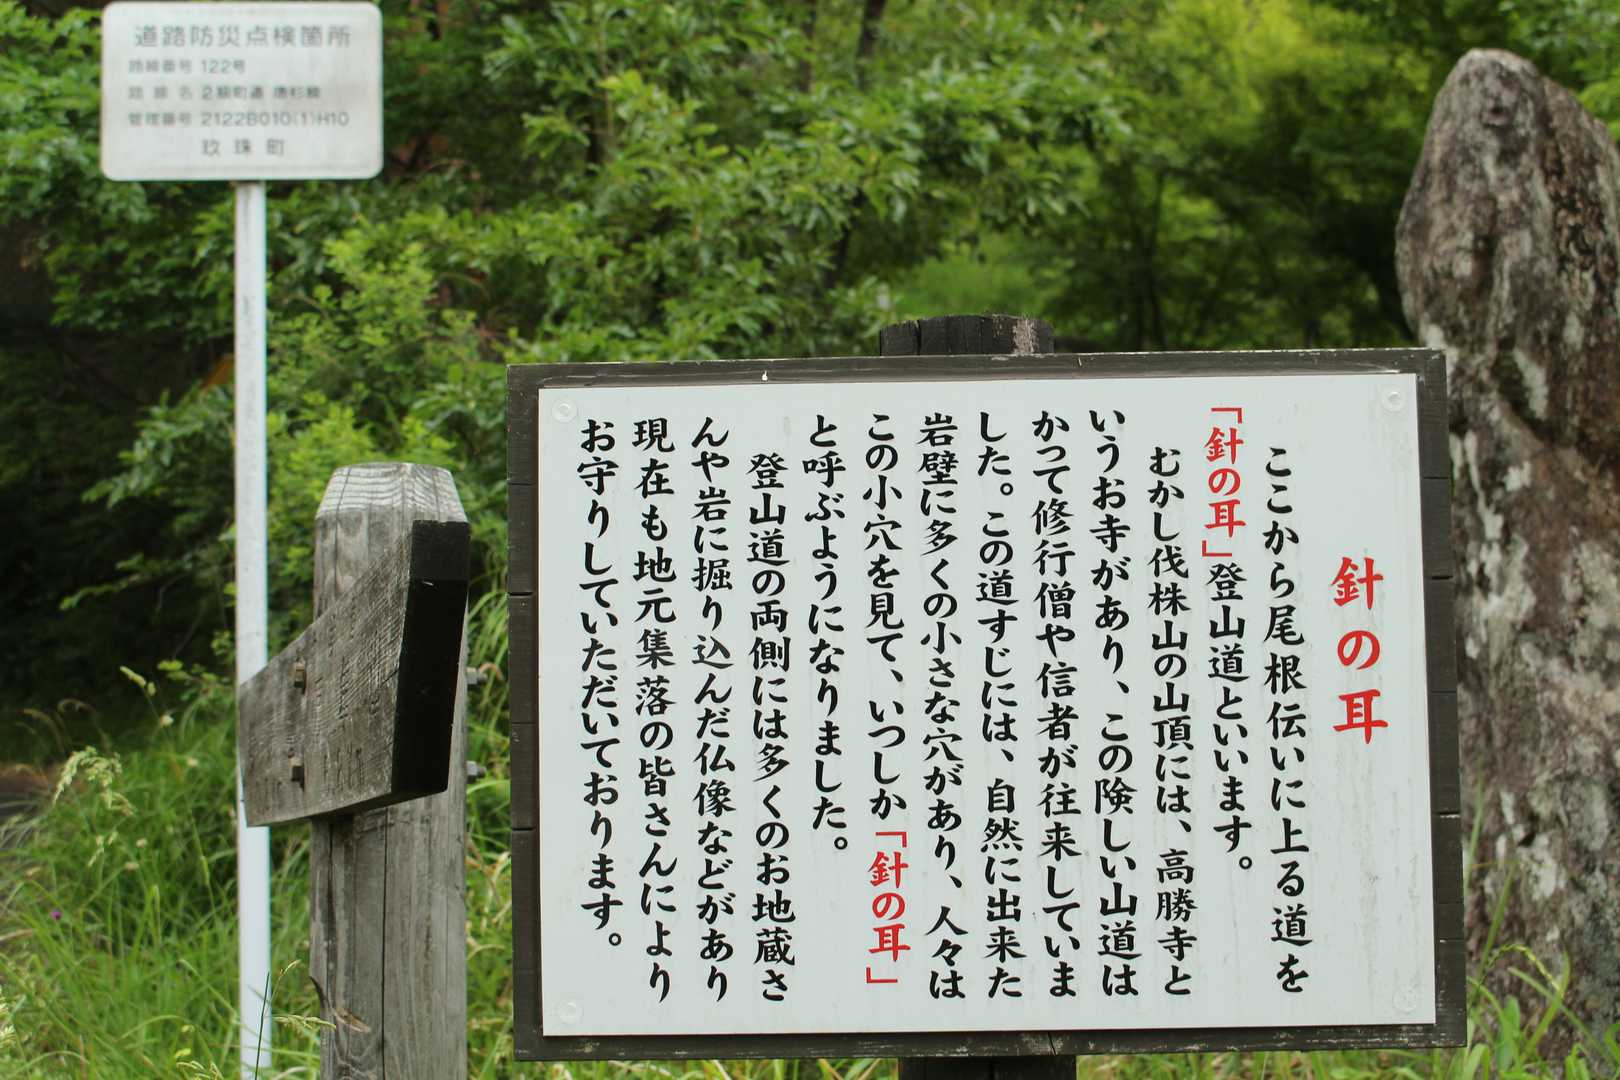 道路防災点検箇所
路線番号 122号
路線名 2級町道 唐杉線
管理番号 2122B010(1)H10
玖珠町
針の耳
ここから尾根伝いに上る道を
「針の耳」登山道といいます。
むかし伐株山の山頂には、高勝寺と
いうお寺があり、この険しい山道は
かって修行僧や信者が往来していま
した。この道すじには、自然に出来た
岩壁に多くの小さな穴があり、人々は
この小穴を見て、いつしか「針の耳」
と呼ぶようになりました。
登山道の両側には多くのお地蔵さ
んや岩に掘り込んだ仏像などがあり
現在も地元集落の皆さんにより
お守りしていただいております。